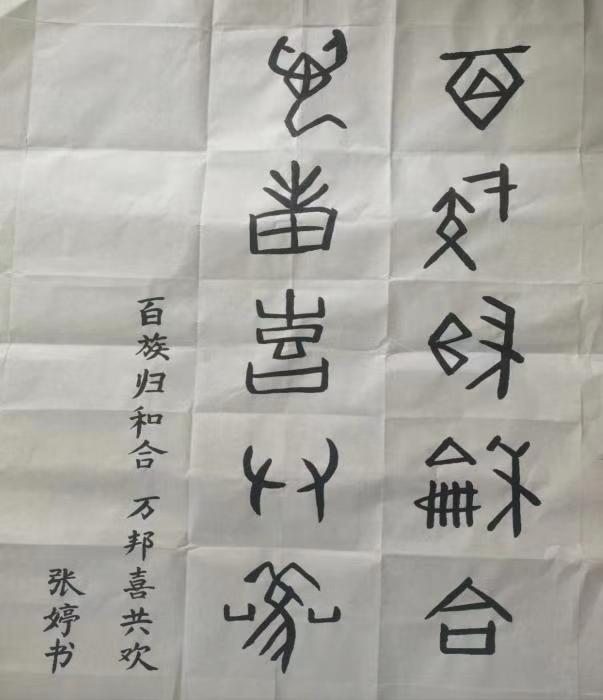 百族歸龢合
萬邦喜共歡
百族归和合 万邦喜共欢
张婷书